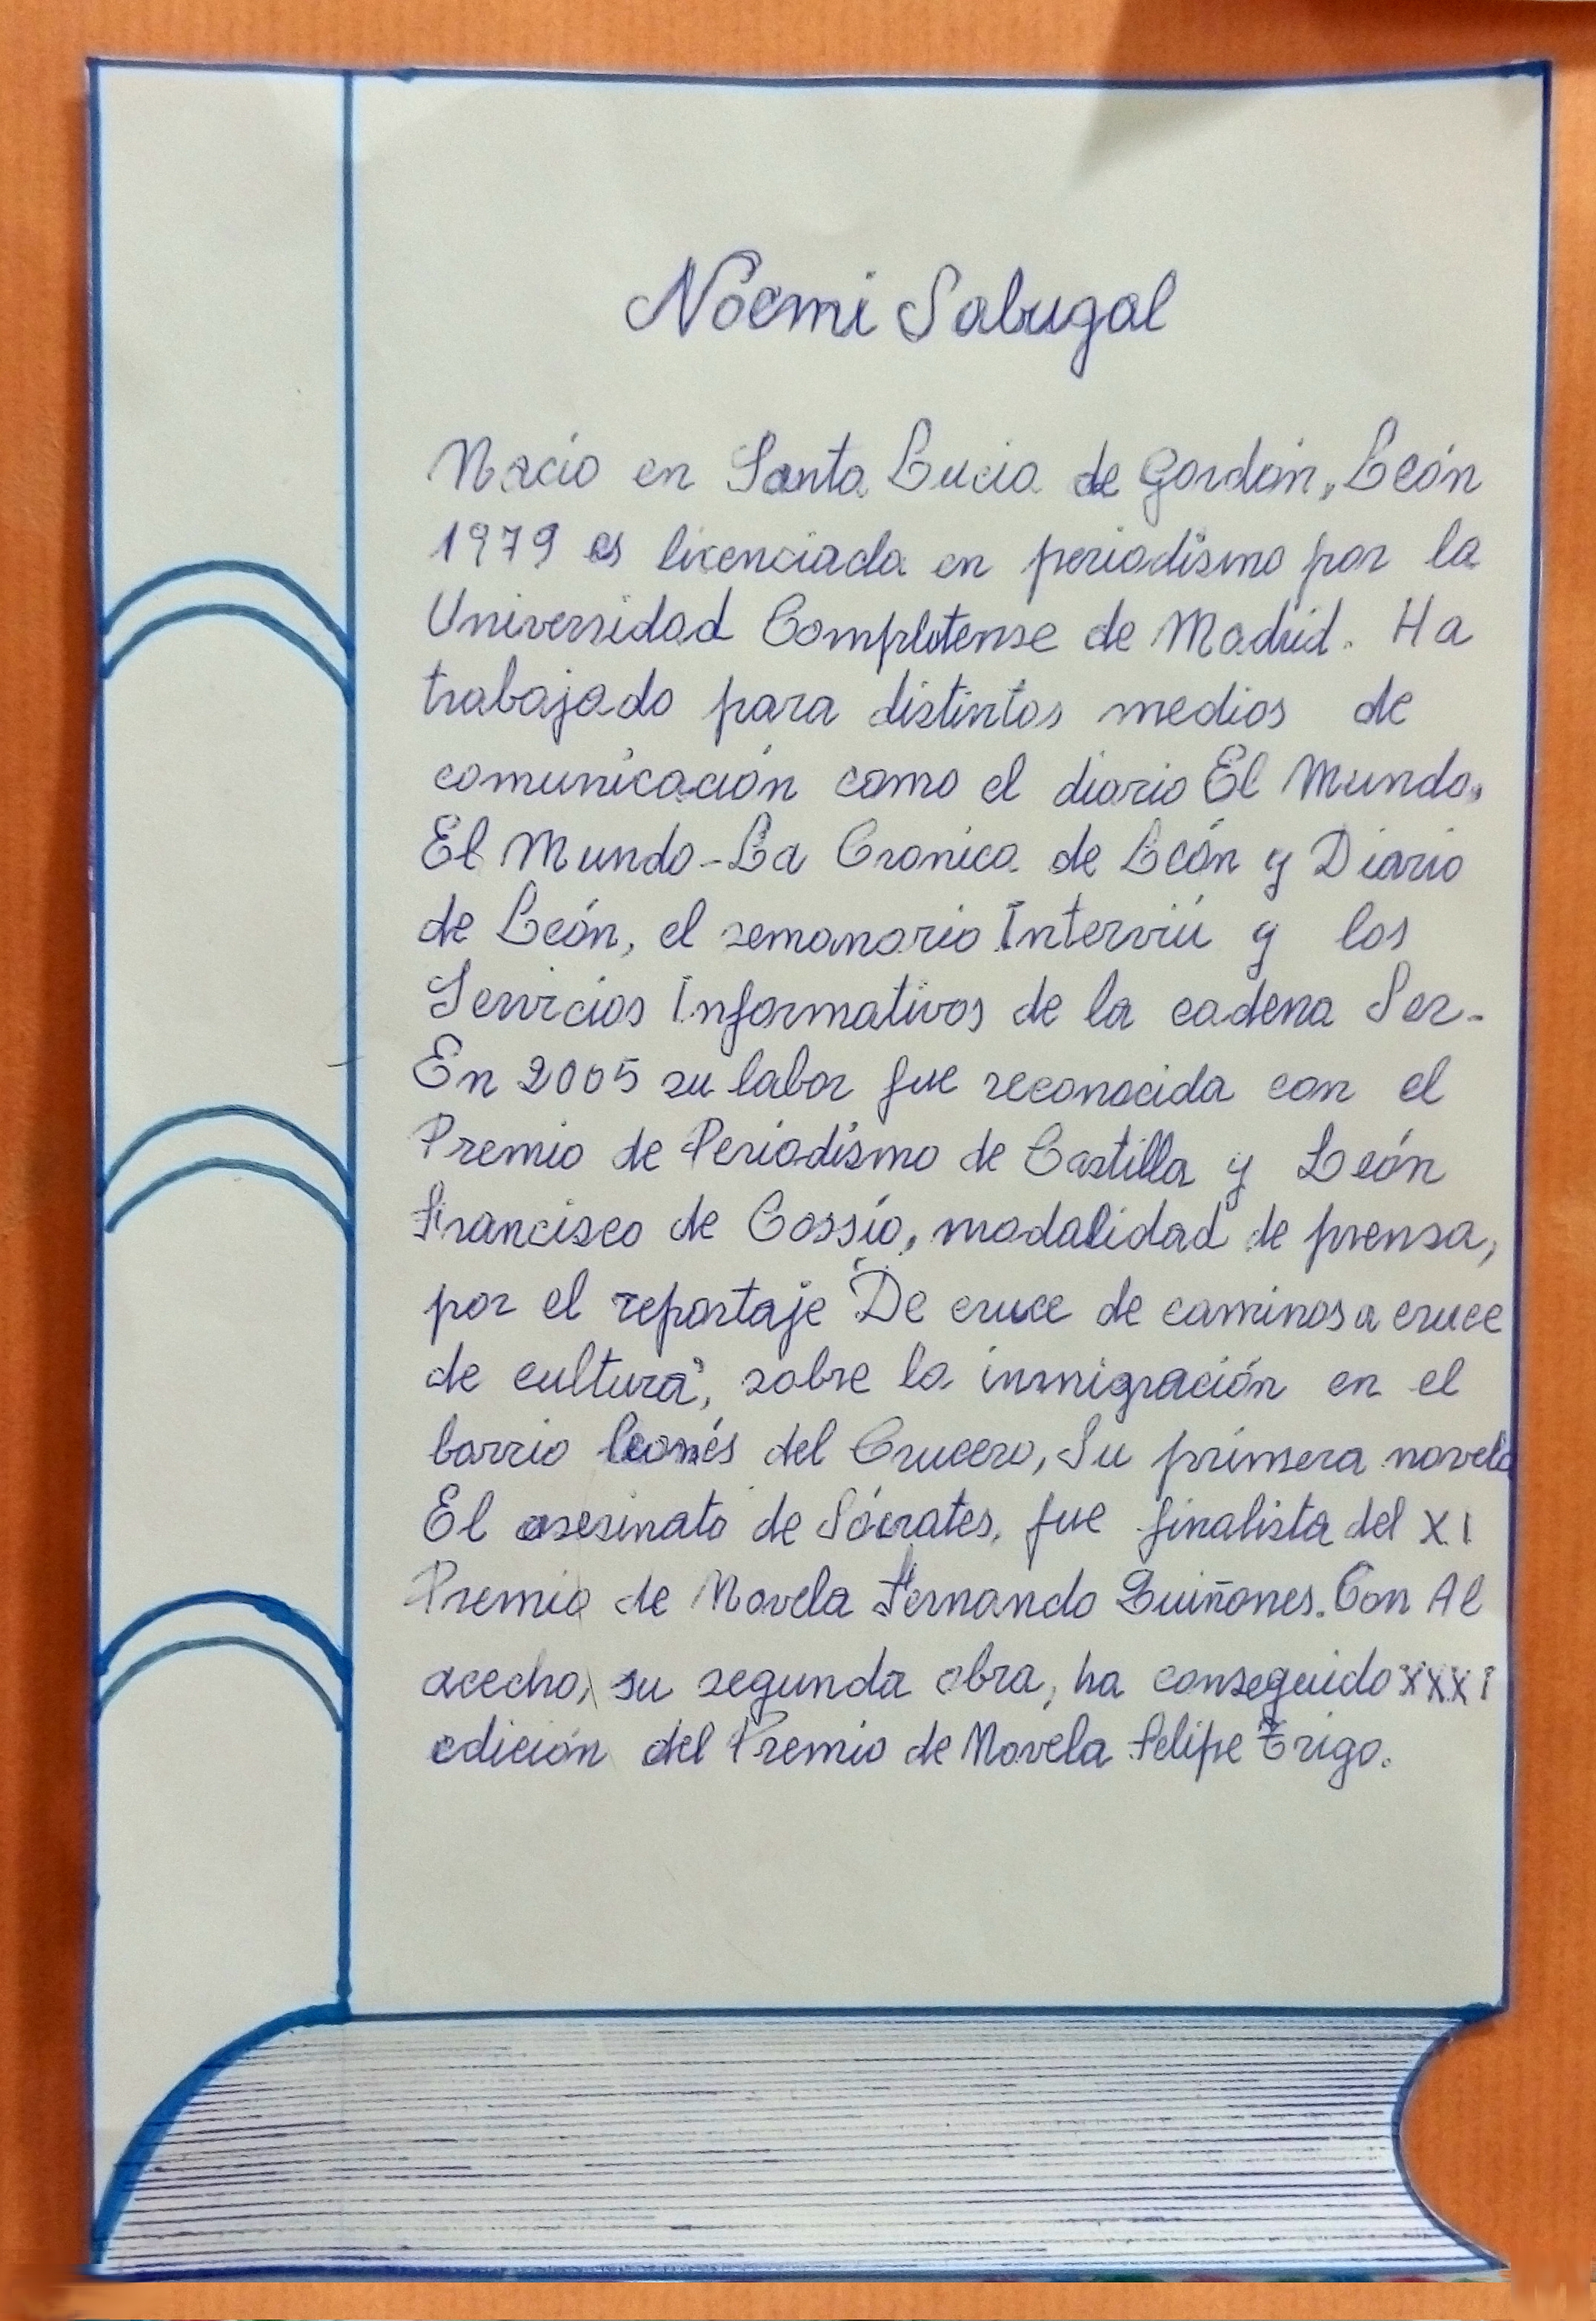 Noemi Sabugal
Nació en Santa Lucia de Gordón, León
1979 es licenciada en periodismo por la
Universidad Complutense de Madrid. Ha
trabajado para distintos medios de
comunicación como el diario El Mundo,
El Mundo-La Cronica de León y Diario
de León, el semanario Interviú y los
Servicios Informativos de la cadena Ser.
En 2005 su labor fue reconocida con el
Premio de Periodismo de Castilla y León
Francisco de Cossío, modalidad de prensa,
por el reportaje "De cruce de caminos a cruce
de cultura", sobre la inmigración en el
barrio leonés del Crucero, Su primera novela
El asesinato de Sócrates, fue finalista del XI
Premio de Novela Fernando Quiñones. Con Al
acecho, su segunda obra, ha conseguido XXXI
edición del Premio de Novela Felipe Trigo.